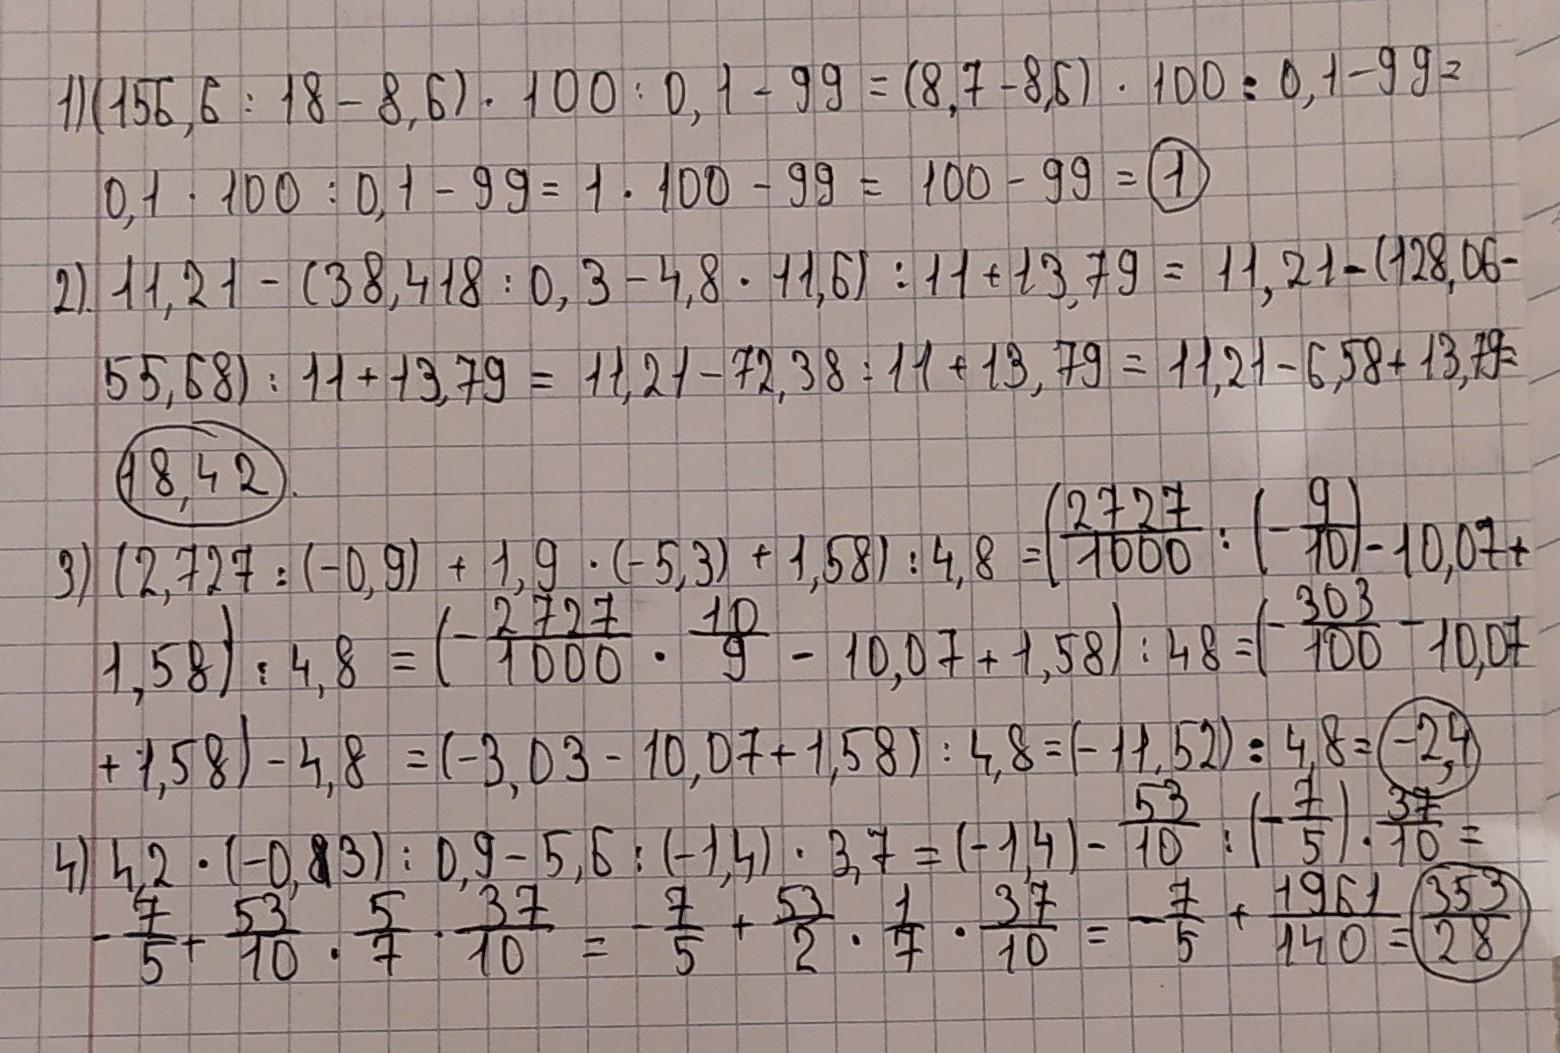 1) (156,6 : 18 - 8,6) · 100 : 0,1 - 99 = (8,7 - 8,6) · 100 : 0,1 - 99 =
0,1 · 100 : 0,1 - 99 = 1 · 100 - 99 = 100 - 99 = 1
2). 11,21 - (38,418 : 0,3 - 4,8 · 11,6) : 11 + 13,79 = 11,21 - (128,06 -
55,68) : 11 + 13,79 = 11,21 - 72,38 : 11 + 13,79 = 11,21 - 6,58 + 13,79 =
18,42.
3) (2,727 : (-0,9) + 1,9 · (-5,3) + 1,58) : 4,8 = (2727/1000 : (-9/10) - 10,07 +
1,58) : 4,8 = (-2727/1000 · 10/9 - 10,07 + 1,58) : 48 = (-303/100 - 10,07
+ 1,58) - 4,8 = (-3,03 - 10,07 + 1,58) : 4,8 = (-11,52) : 4,8 = -2,4
4) 4,2 · (-0,3) : 0,9 - 5,6 : (-1,4) · 3,7 = (-1,4) - 53/10 : (-7/5) · 37/10 =
-7/5 + 53/10 · 5/7 · 37/10 = -7/5 + 53/2 · 1/7 · 37/10 = -7/5 + 1961/140 = 353/28